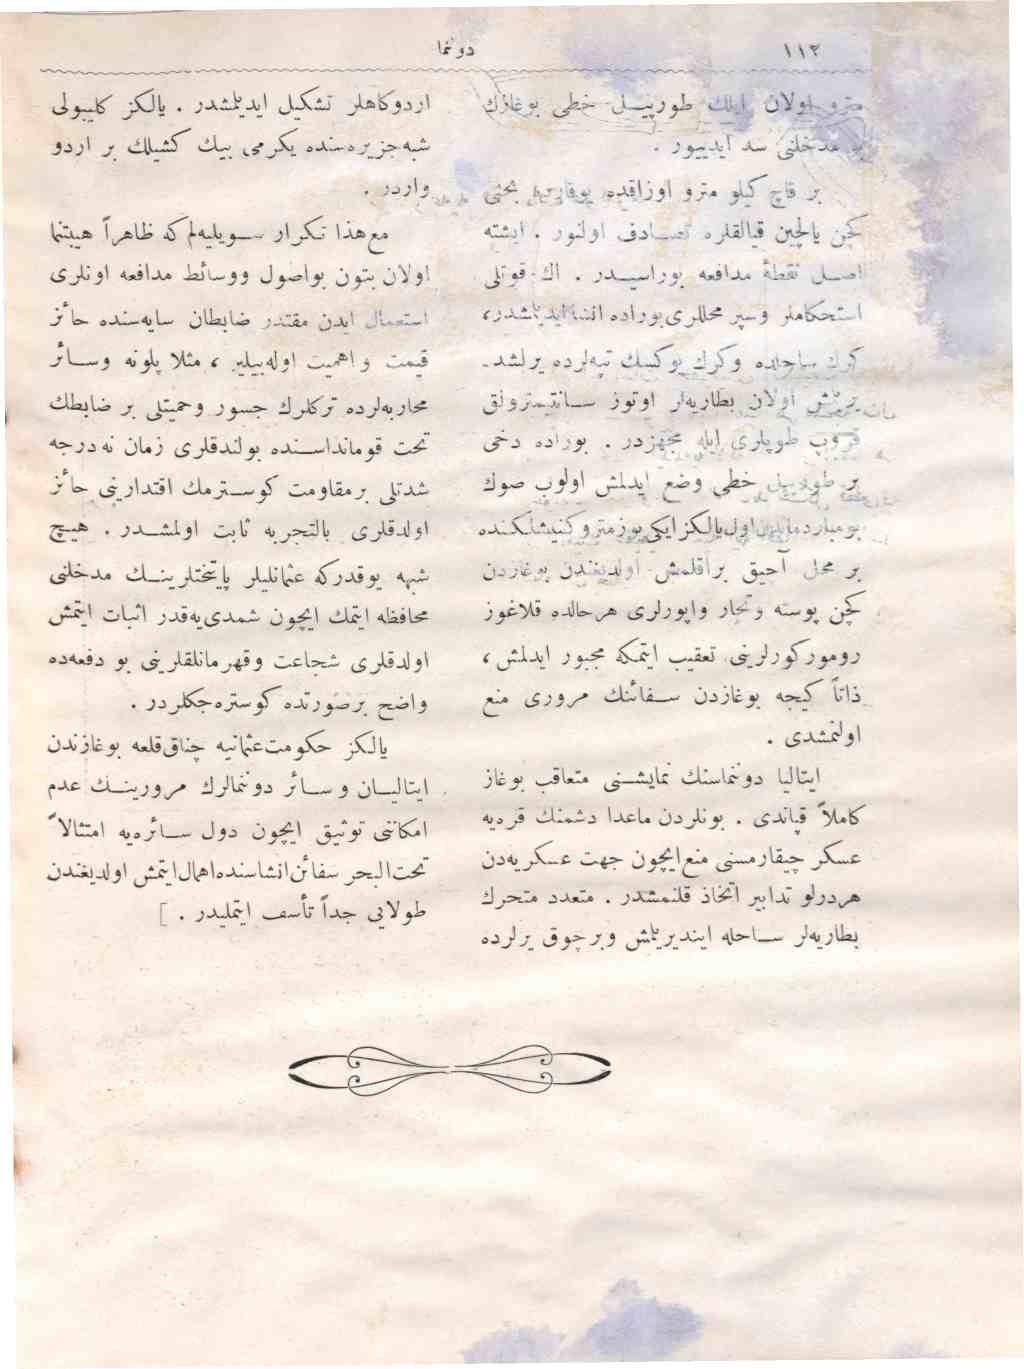 ١١٢
دوننما
مترو اولان ایلك طورپیــل خطی بوغازك
مدخلنی سد ایدییور .
بر قاچ كیلو مترو اوزاقده یوقاریده بحثی
كچن یالچین قیالقلره تصــادف اولنور . ایشته
اصــل نقطهٔ مدافعه بوراسیــدر . اك قوتلی
استحكاملر وسپر محللری بوراده انشا ایدیلمشدر،
كرك ساحلده وكرك یوكسك تپه‌لرده یرلشد‌ـ
یرلمش اولان بطاریه‌لر اوتوز ســانتیمترولق
قروپ طوپلری ایله مجهزدر . بوراده دخی
بر طورپیل خطی وضع ایدلمش اولوب صوك
بومباردماندن اول یالكز ایكی یوز مترو كنیشلكنده
بر محل آچیق براقلمش اولدیغندن بوغازدن
كچن پوسته وتجار واپورلری هر حالده قلاغوز
رومورکورلرینی تعقیب ایتمكه مجبور ایدلمش،
ذاتاً كیجه بوغازدن ســفائنك مروری منع
اولنمشدی .
ایتالیا دوننماسنك نمایشــنی متعاقب بوغاز
كاملاً قپاندی . بونلردن ماعدا دشمنك قره‌یه
عسكر چیقارمسنی منع ایچون جهت عسكریه‌دن
هردرلو تدابیر اتخاذ قلنمشدر . متعدد متحرك
بطاریه‌لر ســاحله ایندیریلمش وبرچوق یرلرده
اردوكاهلر تشكیل ایدیلمشدر . یالكز كلیبولی
شبه‌جزیره‌سنده یكرمی بیك كشیلك بر اردو
واردر .
مع هذا تكرار ســویلیه‌لم كه ظاهراً هیبتنما
اولان بتون بواصول ووسائط مدافعه اونلری
استعمال ایدن مقتدر ضابطان سایه‌سنده حائز
قیمت و اهمیت اوله‌بیلیر ، مثلا پلونه وســائر
محاربه‌لرده تركلرك جسور وحمیتلی بر ضابطك
تحت قومانداســنده بولندقلری زمان نه درجه
شدتلی بر مقاومت كوســترمك اقتدارینی حائز
اولدقلری بالتجربه ثابت اولمشــدر . هیــچ
شبهه یوقدركه عثمانلیلر پایتختلرینــك مدخلنی
محافظه ایتمك ایچون شمدی‌یه‌قدر اثبات ایتمش
اولدقلری شجاعت وقهرمانلقلرینی بو دفعه‌ده
واضح برصورتده كوستره‌جكلردر .
یالكز حكومت‌عثمانیه چناق‌قلعه بوغازندن
ایتالیــان وســائر دوننمالرك مرورینــك عدم
امكاننی توثیق ایچون دول ســائره‌یه امتثالاً
تحت‌البحر سفائن انشاسنده اهمال ایتمش اولدیغندن
طولایی جداً تأسف ایتملیدر . ]